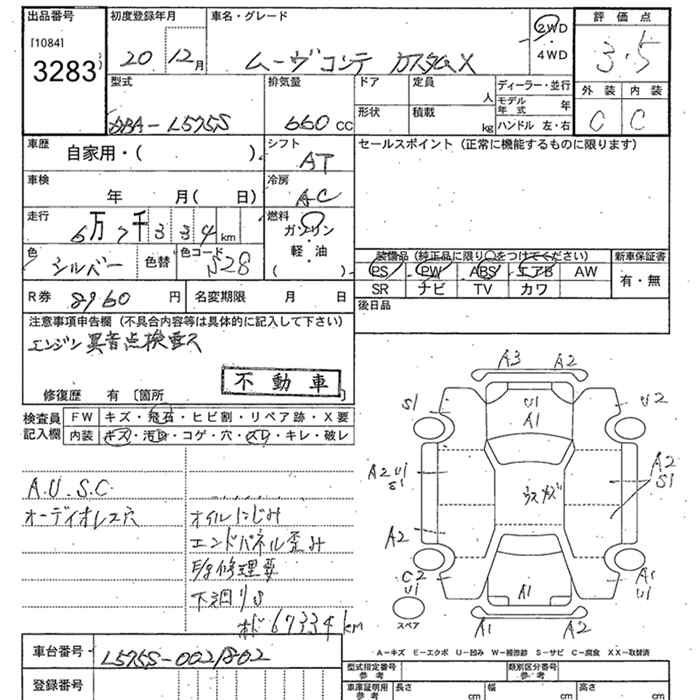 出品番号
[1084]
3283
初度登録年月
20年 12月
車名・グレード
ムーヴコンテ カスタムX
2WD
4WD
評価点
3.5
外装 内装
C C
型式
DBA-L575S
排気量
660 cc
ドア
定員
人
ディーラー・並行
モデル年式 年
形状
積載
kg
ハンドル 左・右
車歴
自家用・( )
シフト
AT
セールスポイント(正常に機能するものに限ります)
車検
年 月( 日)
冷房
AC
走行
6万7千334km
燃料
ガソリン
・
軽油
( )
色
シルバー
色替
色コード
S28
装備品(純正品に限り○をつけてください)
PS PW ABS エアB AW
SR ナビ TV カワ
新車保証書
有・無
R券 8960 円
名変期限 月 日
後日品
注意事項申告欄(不具合内容等は具体的に記入して下さい)
エンジン異音点検要ス
不動車
修復歴 有〔箇所 〕
検査員記入欄
FW キズ・飛石・ヒビ割・リペア跡・X要
内装 キズ・汚レ・コゲ・穴・スレ・キレ・破レ
A.U.S.C
オーディオレス穴
オイルにじみ
エンドパネル歪み
E/g修理要
下廻りS
オド67334km
A3 A2
S1 U1 A1 U2
A2 U1 S1
ウスキズ
A2 S1
A2
C2 U1
A1
A1 U1
スペア
A1 A2
A-キズ E-エクボ U-凹み W-補修跡 S-サビ C-腐食 XX-取替済
車台番号 L575S-0021802
登録番号
型式指定番号 参考
類別区分番号 参考
車庫証明用 参考
長さ cm
幅 cm
高さ cm